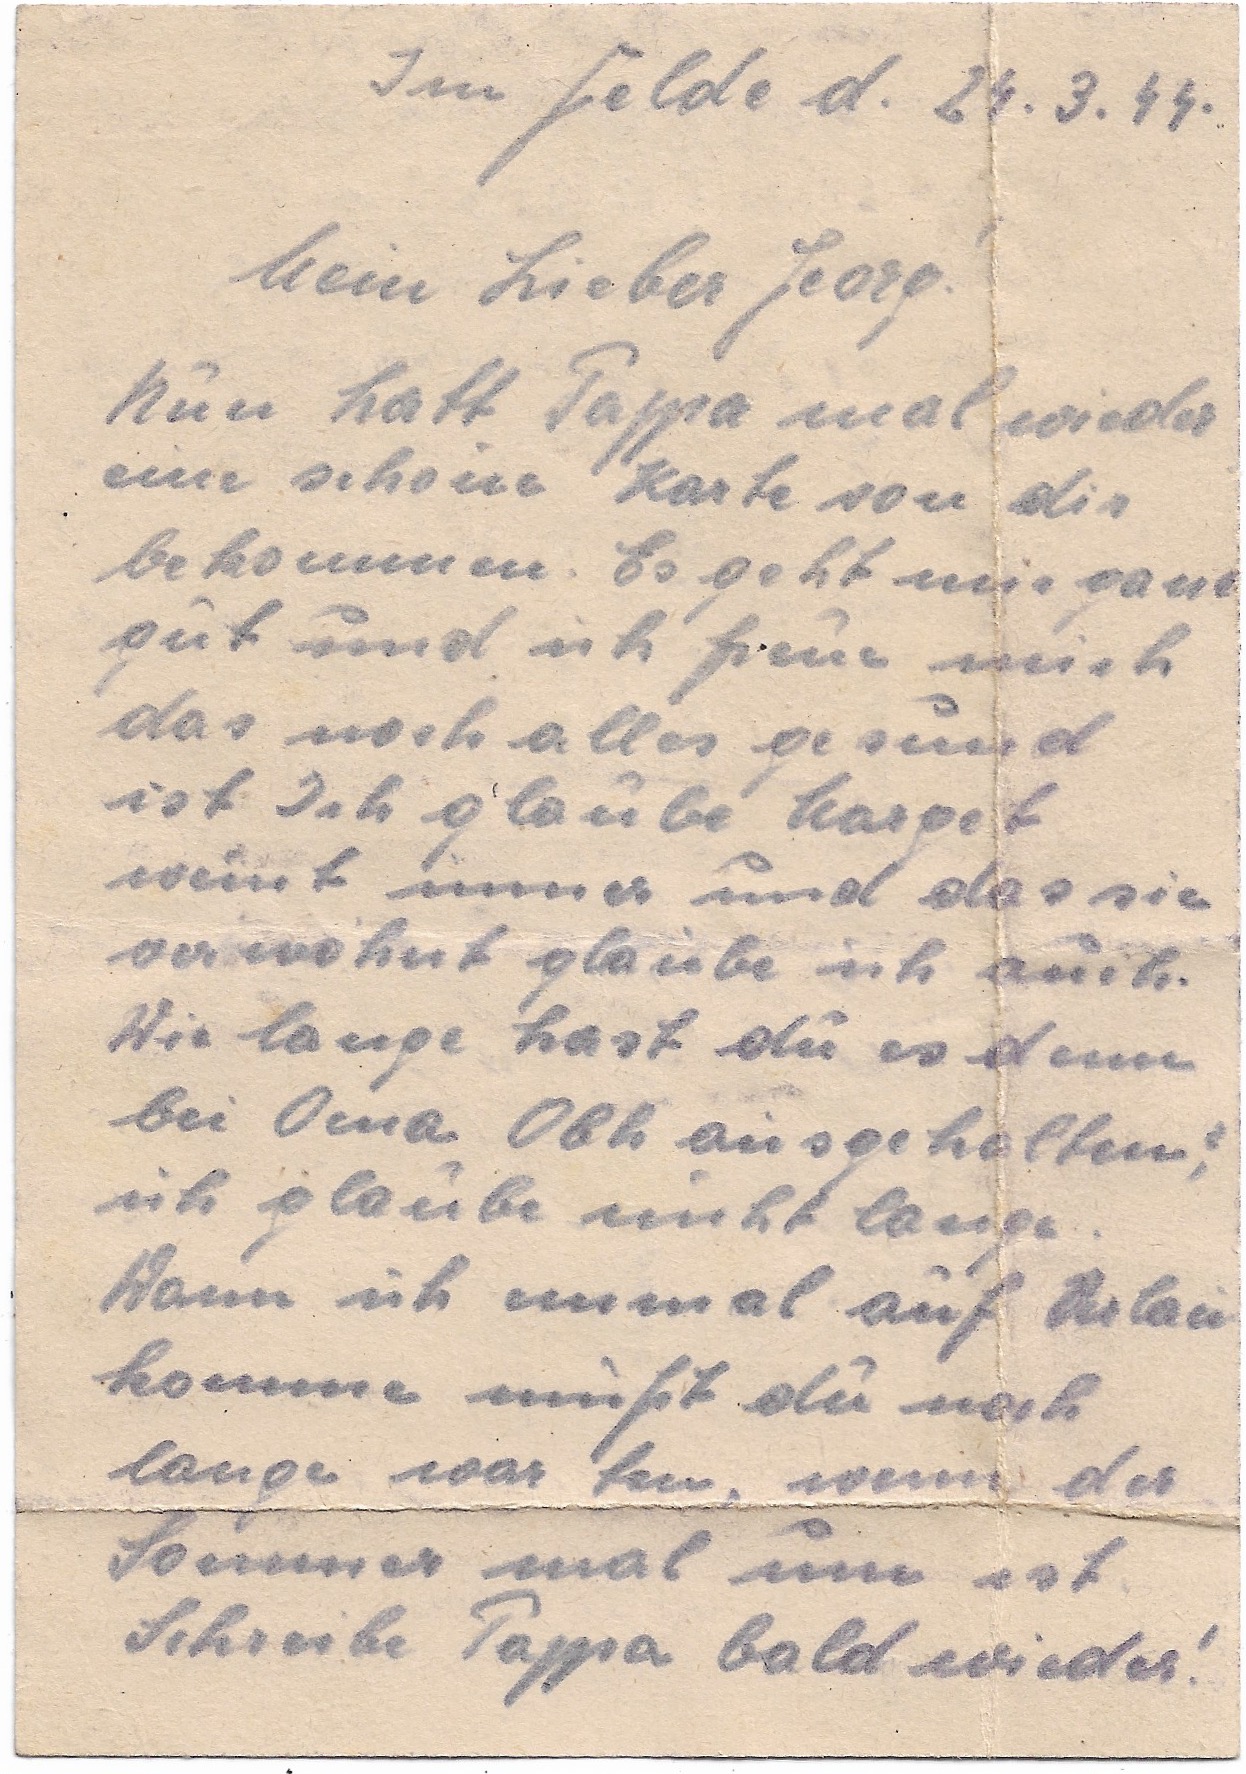 Im Felde d. 24. 3. 44.
Mein Lieber Georg!
Nun hatt Pappa mal wieder
eine schöne Karte von dir
bekommen. Es geht mir ganz
gut und ich freue mich
das noch alles gesund
ist Ich glaube Marget
weint immer und das sie
verwöhnt glaube ich auch.
Wie lange hast du es denn
bei Oma ausgehalten?
ich glaube nicht lange.
Wann ich einmal auf Urlau
komme mußt du noch
lange war ten, wenn der
Sommer mal um ist.
Schreibe Pappa bald wieder!